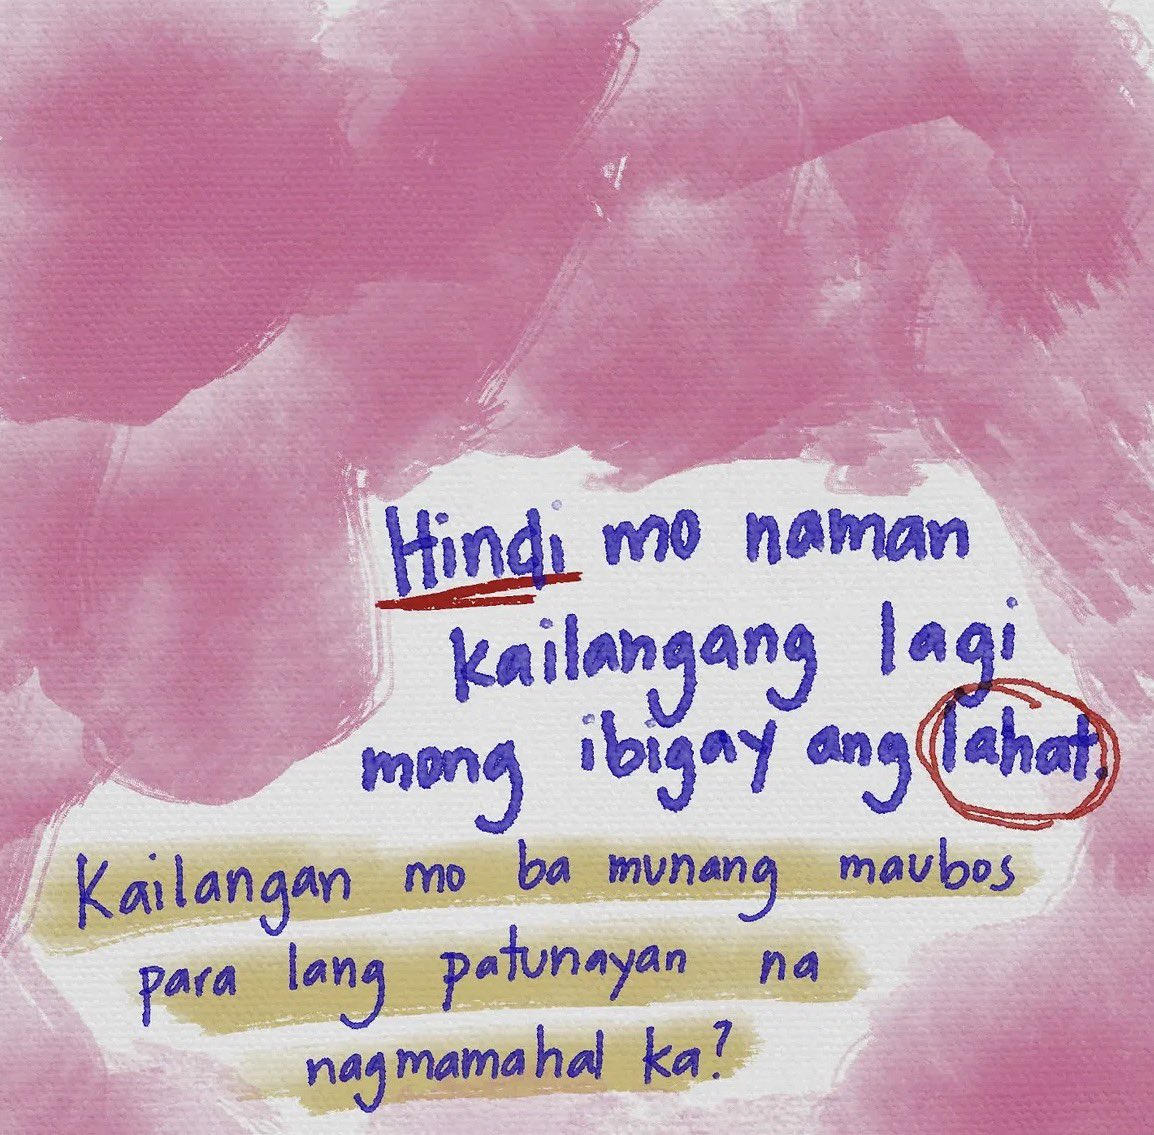 Hindi mo naman
kailangang lagi
mong ibigay ang lahat.
Kailangan mo ba munang maubos
para lang patunayan na
nagmamahal ka?